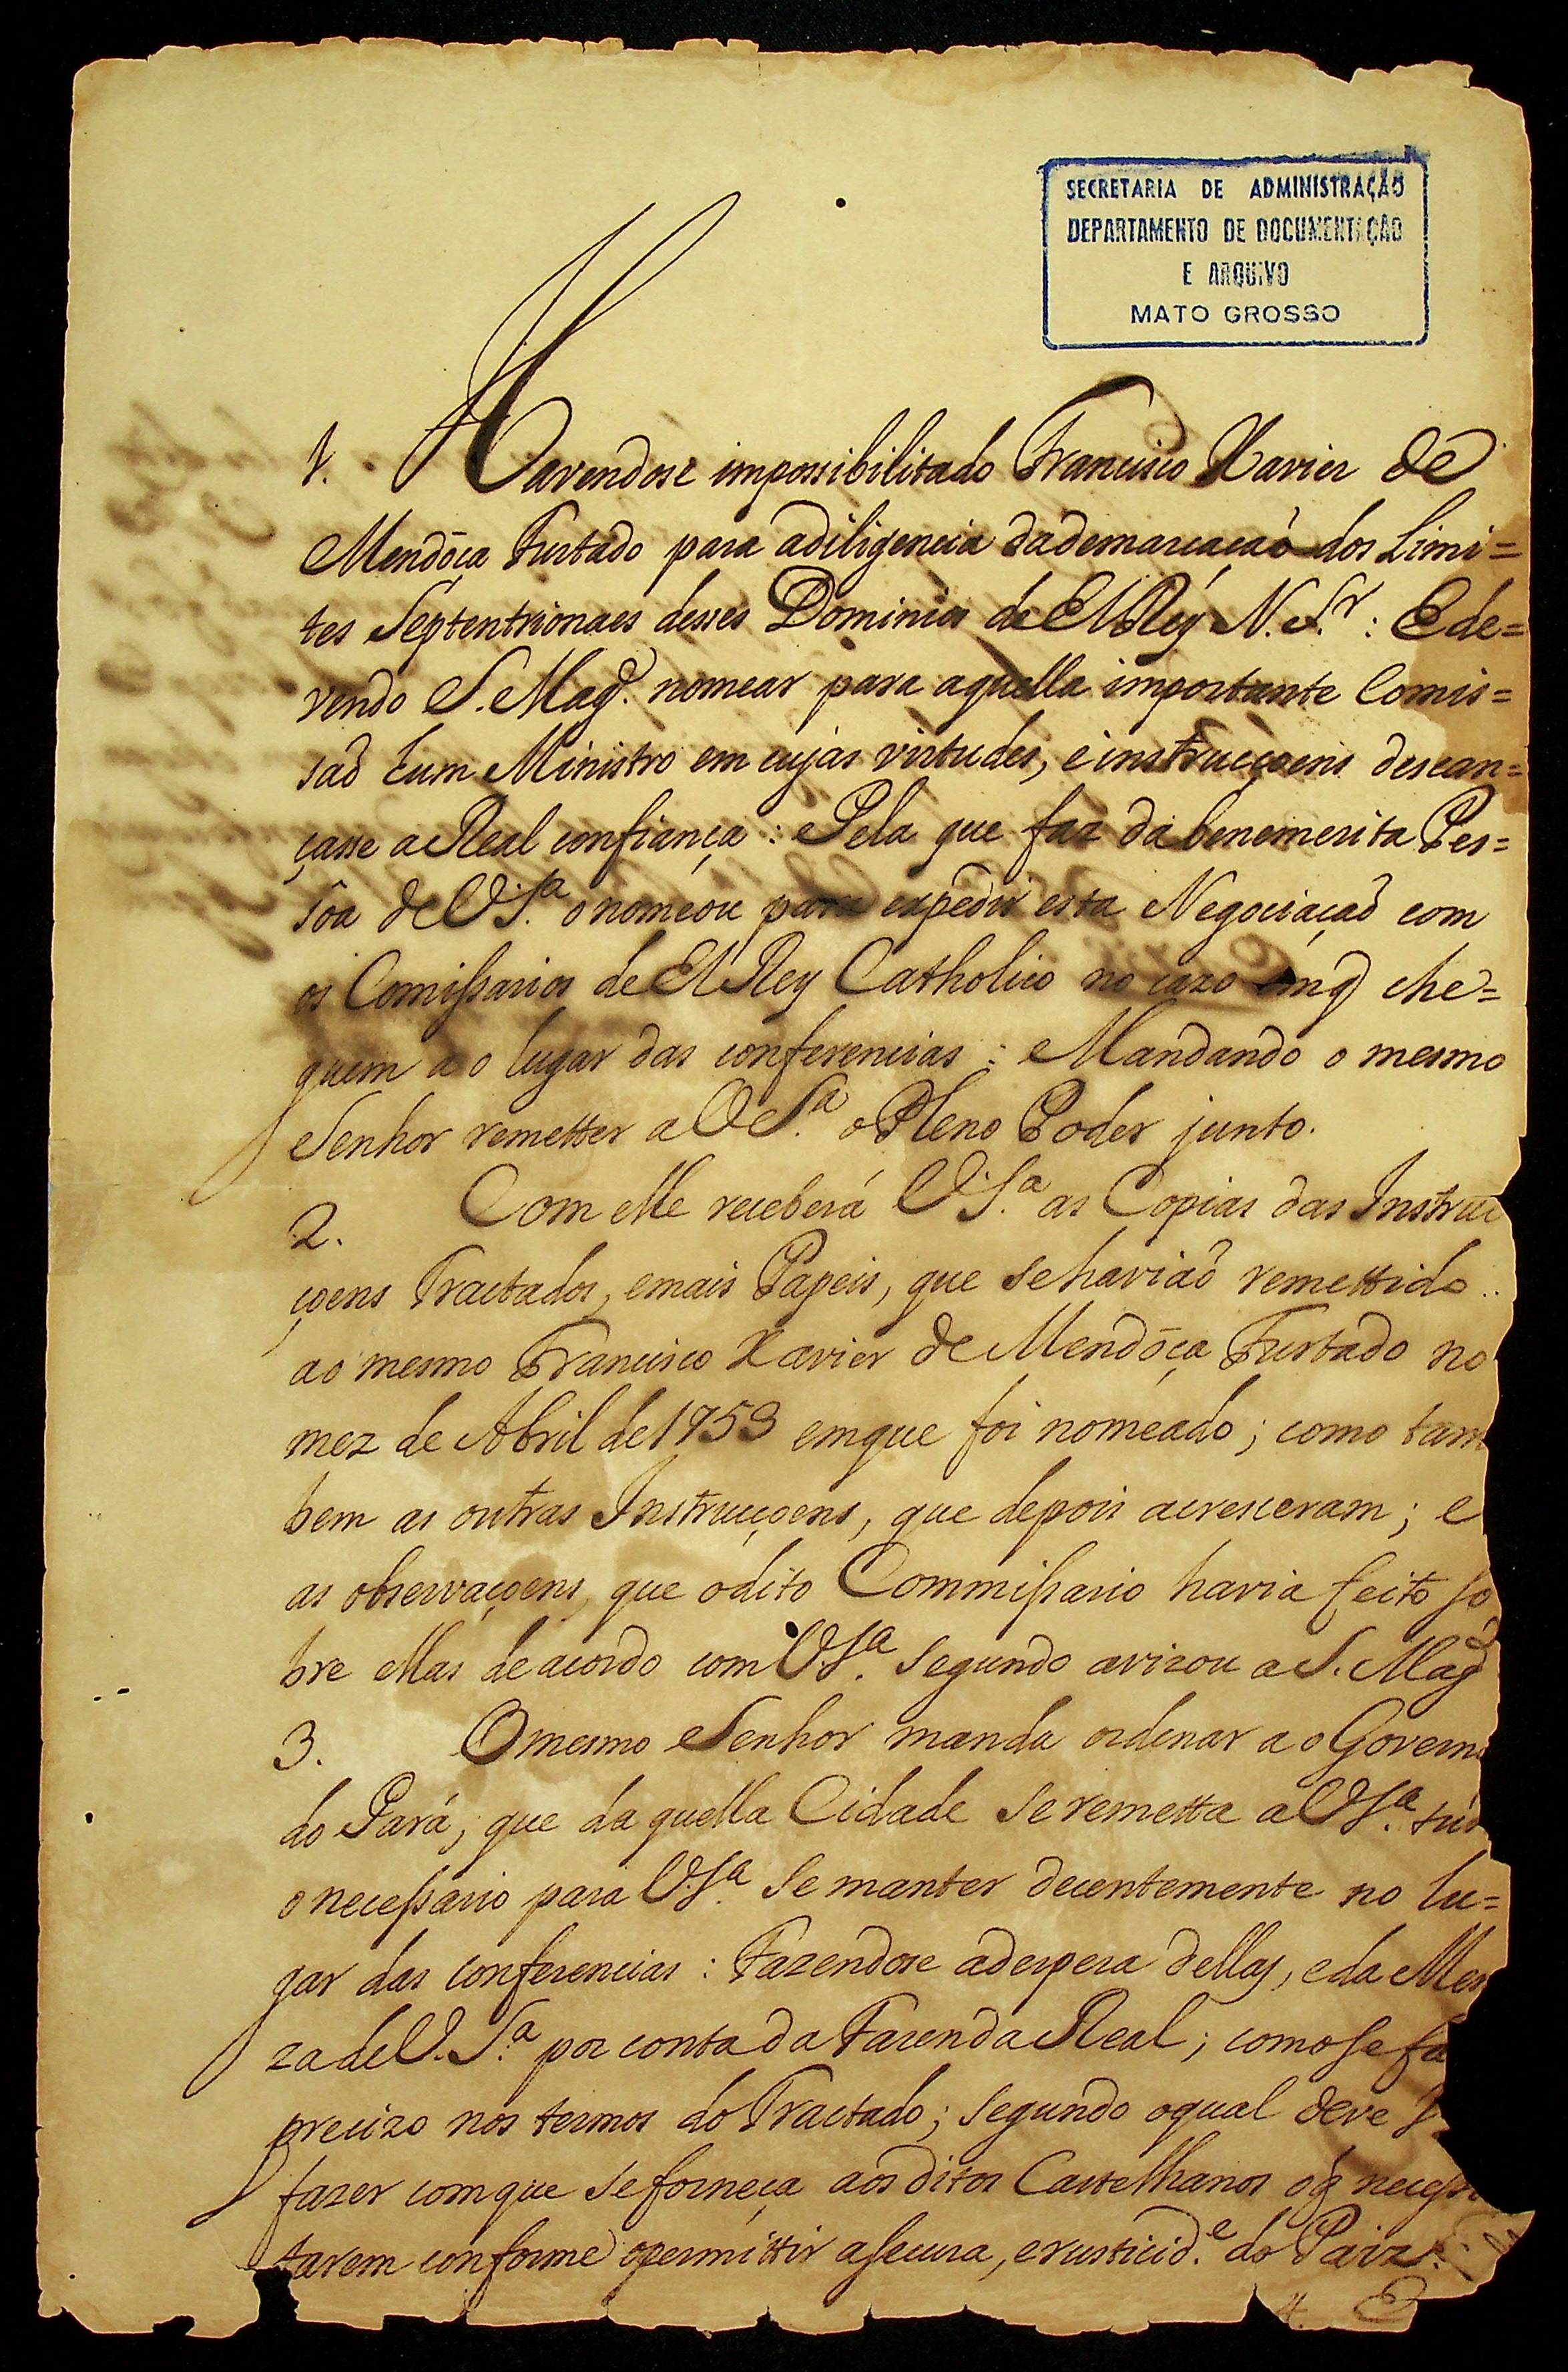 SECRETARIA DE ADMINISTRAÇÃO
DEPARTAMENTO DE DOCUMENTAÇÃO
E ARQUIVO
MATO GROSSO
1. Havendose impossibilitado Francisco Xavier de
Mendõça Furtado para adiligencia dademarcacaõ dos Limi=
tes Septentrionaes desses Dominios de ElRey N. Sr: E de=
vendo S. Magde. nomear para aquella importante Comis=
saõ hum Ministro em cujas virtudes, e instrucçoens descan=
çasse a Real confiança: Pela que faz da benemerita Pes=
sôa de V.Sa. o nomeou para expedir esta Negociaçaõ com
os Comissarios de El Rey Catholico no cazo emq che=
guem ao lugar das conferencias: Mandando o mesmo
Senhor remetter a V.Sa. o Pleno Poder junto.
2. Com elle receberá V.Sa. as Copias das Instruc
çoens Tractados, emais Papeis, que sehaviaõ remettido
ao mesmo Francisco Xavier de Mendõça Furtado no
mez de Abril de 1753 emque foi nomeado; como tam
bem as outras Instrucçoens, que depois acresceram; e
as observaçoens, que odito Commissario havia feito so
bre ellas de acordo com V.Sa. segundo avizou a S. Magde
3. O mesmo Senhor manda ordenar ao Governo
do Pará, que da quella Cidade se remetta a V.Sa. tud
o necessario para V.Sa. Se manter decentemente no lu=
gar das conferencias: Fazendose adespeza dellas, e da Me
za de V.Sa. por conta da Fazenda Real; como se fa
precizo nos termos do Tractado; segundo oqual deve
fazer comque se forneça aos ditos Castelhanos oq necessi
tarem conforme opermittir a secura, e rusticide. do Paiz.
4. E